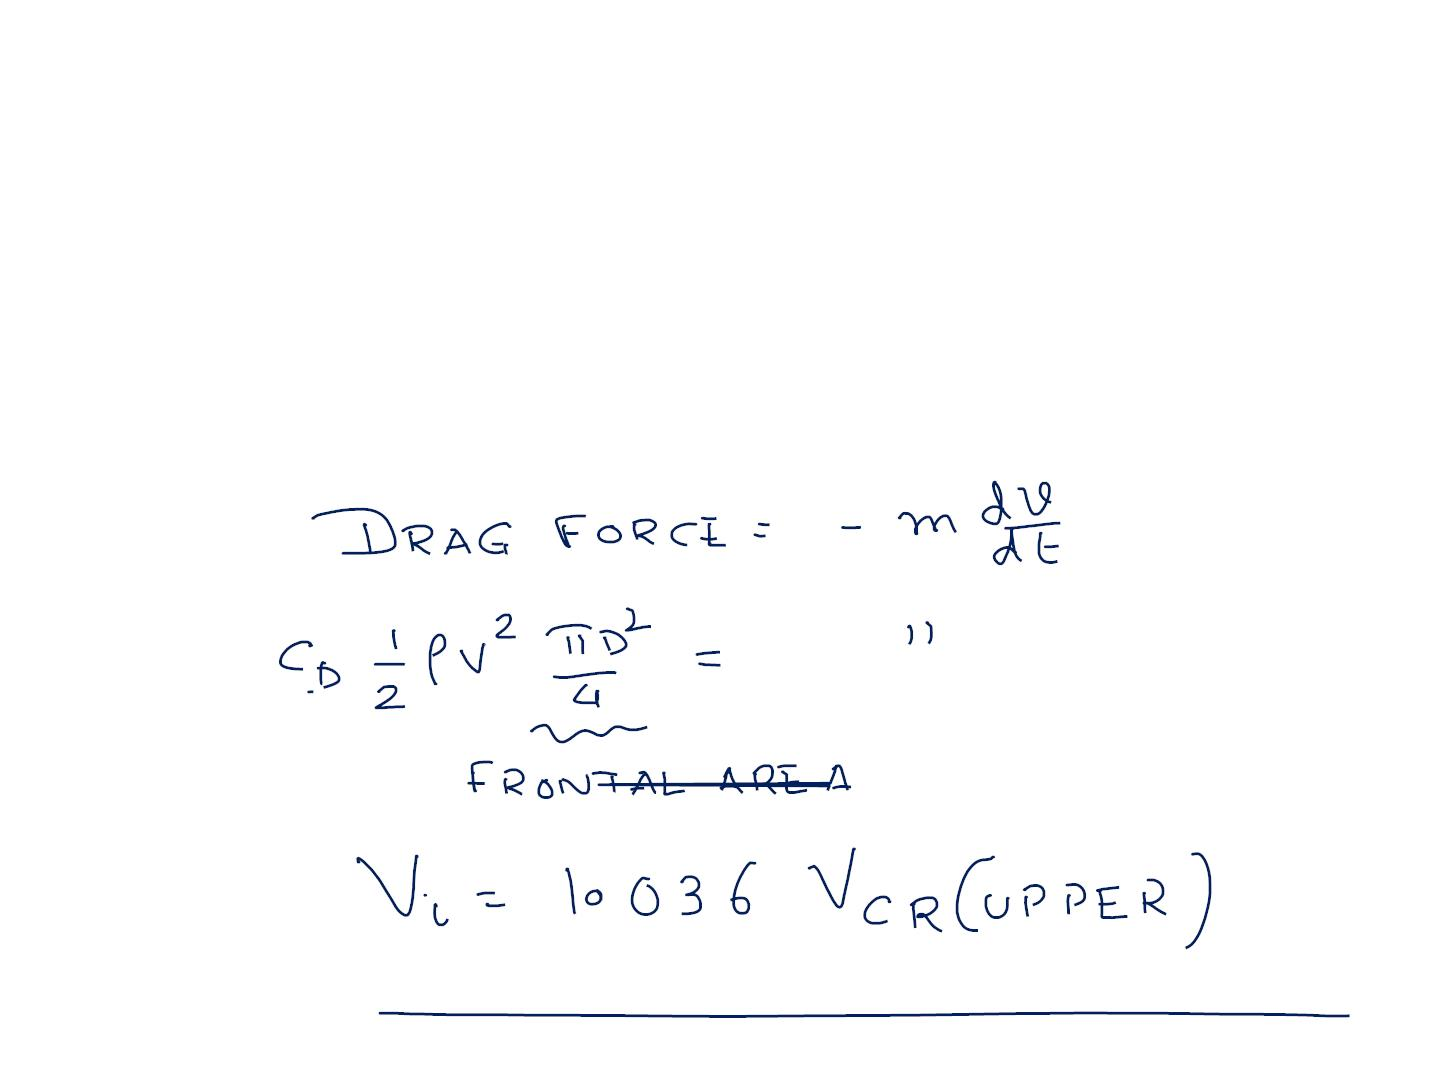 DRAG FORCE = - m dv/dt
C_D 1/2 ρV² πD²/4 = "
FRONTAL AREA
V_i = 10036 V_CR(UPPER)